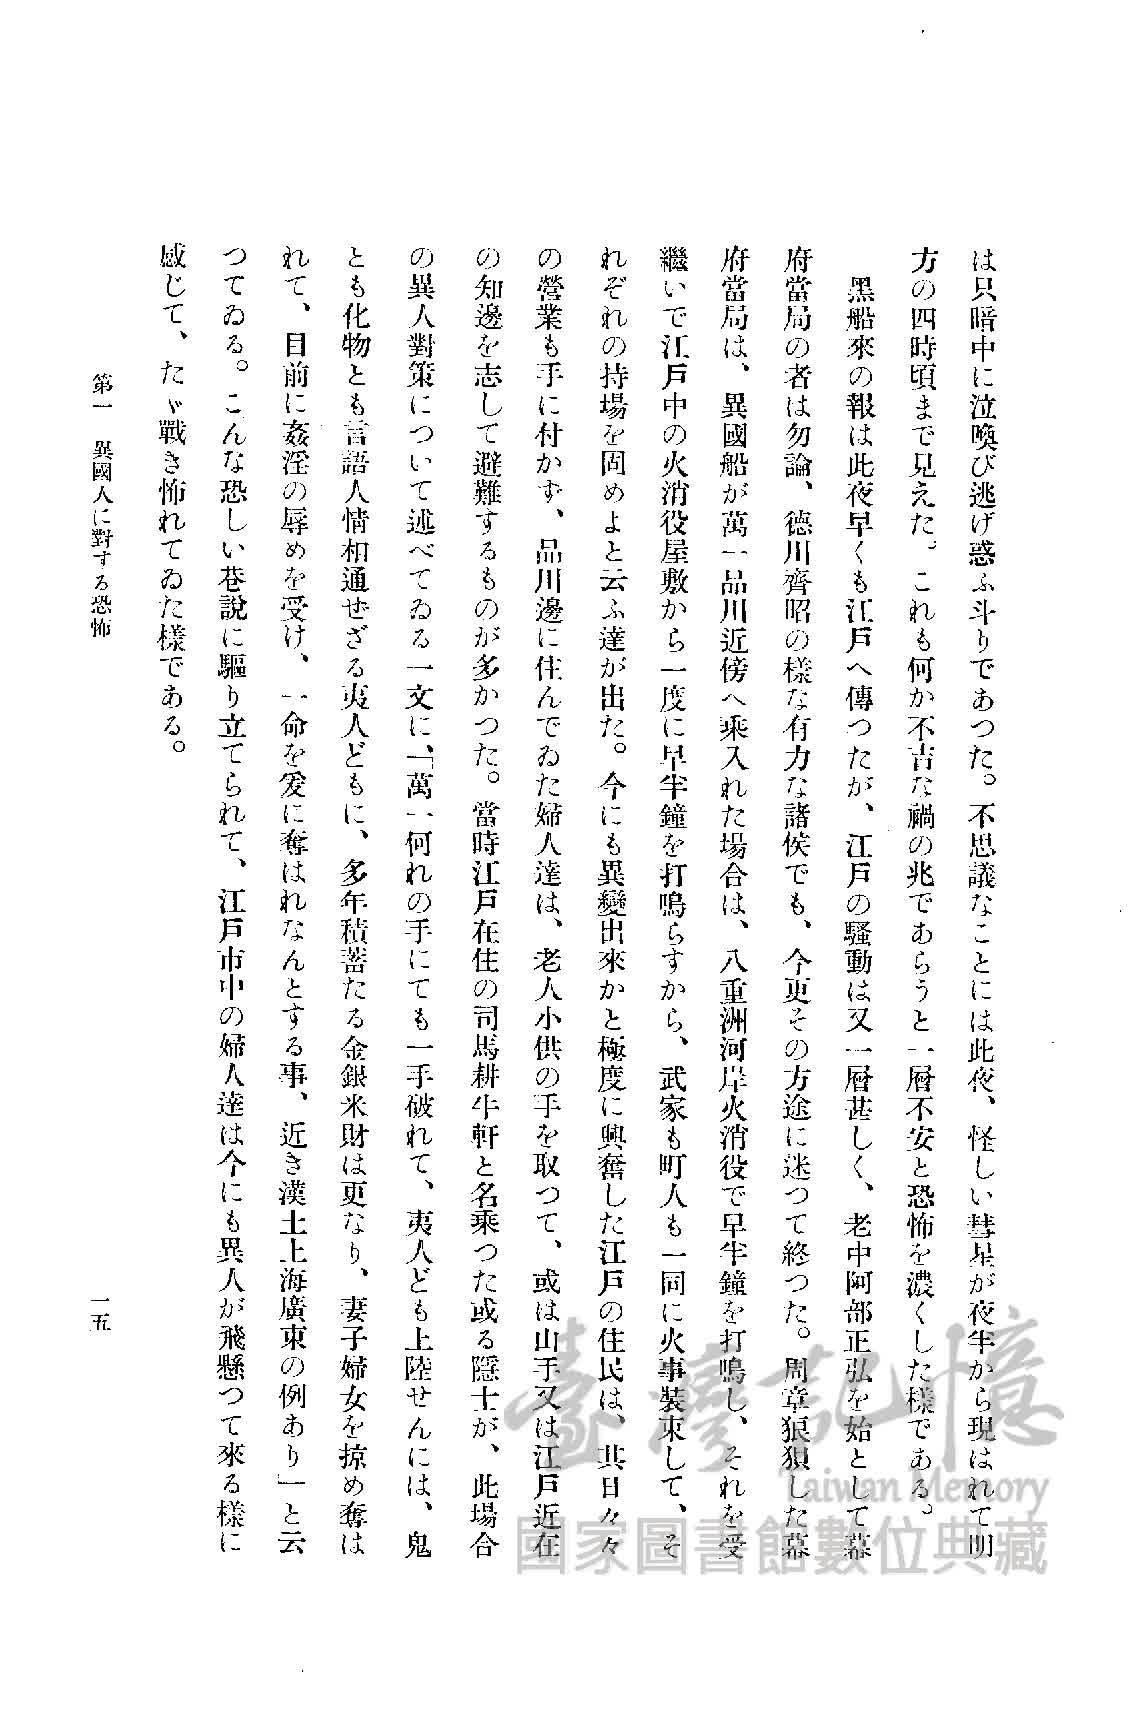 は只暗中に泣喚び逃げ惑ふ斗りであつた。不思議なことには此夜、怪しい彗星が夜半から現はれて明
方の四時頃まで見えた。これも何か不吉な禍の兆であらうと一層不安と恐怖を濃くした樣である。
黑船來の報は此夜早くも江戸へ傳つたが、江戸の騷動は又一層甚しく、老中阿部正弘を始として幕
府當局の者は勿論、德川齊昭の樣な有力な諸侯でも、今更その方途に迷つて終つた。周章狼狽した幕
府當局は、異國船が萬一品川近傍へ乘入れた場合は、八重洲河岸火消役で早半鐘を打鳴し、それを受
繼いで江戸中の火消役屋敷から一度に早半鐘を打鳴らすから、武家も町人も一同に火事裝束して、そ
れぞれの持場を固めよと云ふ達が出た。今にも異變出來かと極度に興奮した江戸の住民は、其日々々
の營業も手に付かず、品川邊に住んでゐた婦人達は、老人小供の手を取つて、或は山手又は江戸近在
の知邊を志して避難するものが多かつた。當時江戸在住の司馬耕牛軒と名乘つた或る隱士が、此場合
の異人對策について述べてゐる一文に、「萬一何れの手にても一手破れて、夷人ども上陸せんには、鬼
とも化物とも言語人情相通ぜざる夷人どもに、多年積蓄たる金銀米財は更なり、妻子婦女を掠め奪は
れて、目前に姦淫の辱めを受け、一命を爰に奪はれなんとする事、近き漢土上海廣東の例あり」と云
つてゐる。こんな恐しい巷說に驅り立てられて、江戸市中の婦人達は今にも異人が飛懸つて來る樣に
感じて、たゞ戰き怖れてゐた樣である。
第一 異國人に對する恐怖
一五
臺灣記憶
Taiwan Memory
國家圖書館數位典藏